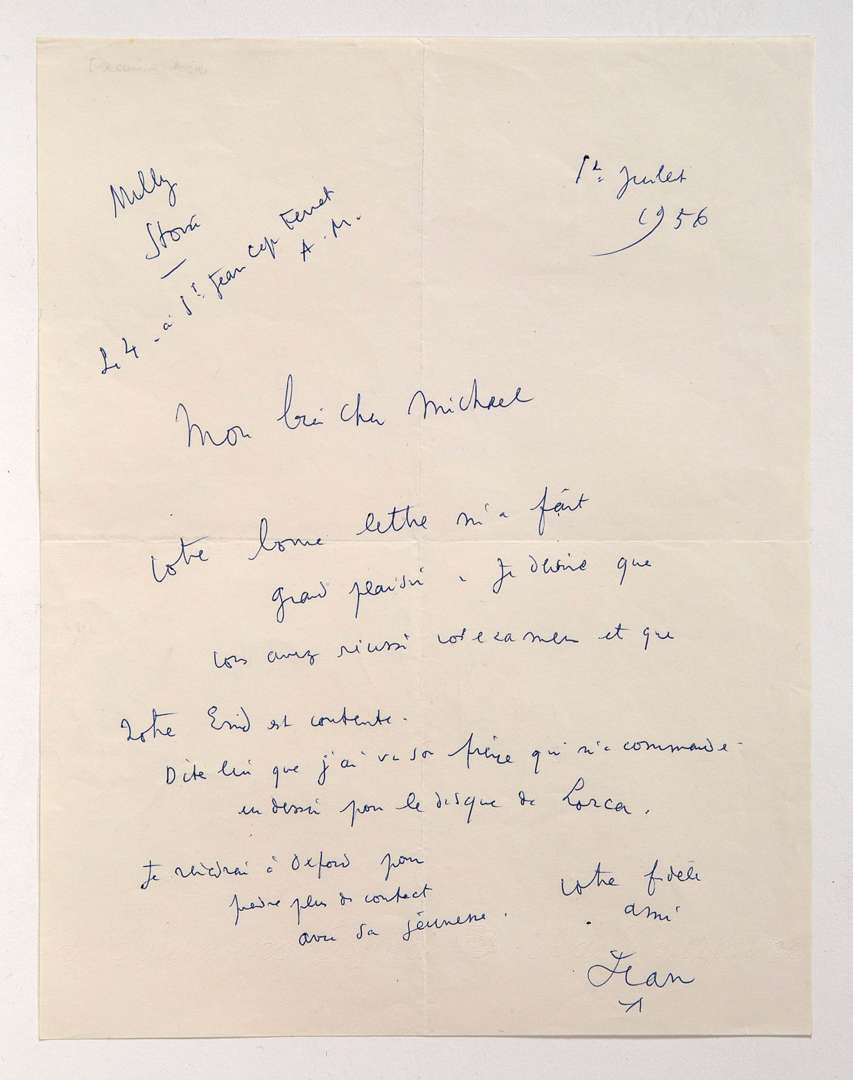 Milly
S. et O.
1er Juillet
1956
Le 4 - à St Jean Cap Ferrat
A. M.
Mon très cher Michael
Votre bonne lettre m'a fait
grand plaisir. Je devine que
vous avez réussi votre examen et que
Votre Enid est contente.
Dites lui que j'ai vu son frère qui m'a commandé
un dessin pour le disque de Lorca.
Je reviendrai à Oxford pour
prendre plus de contact
avec sa jeunesse.
Votre fidèle
ami
Jean